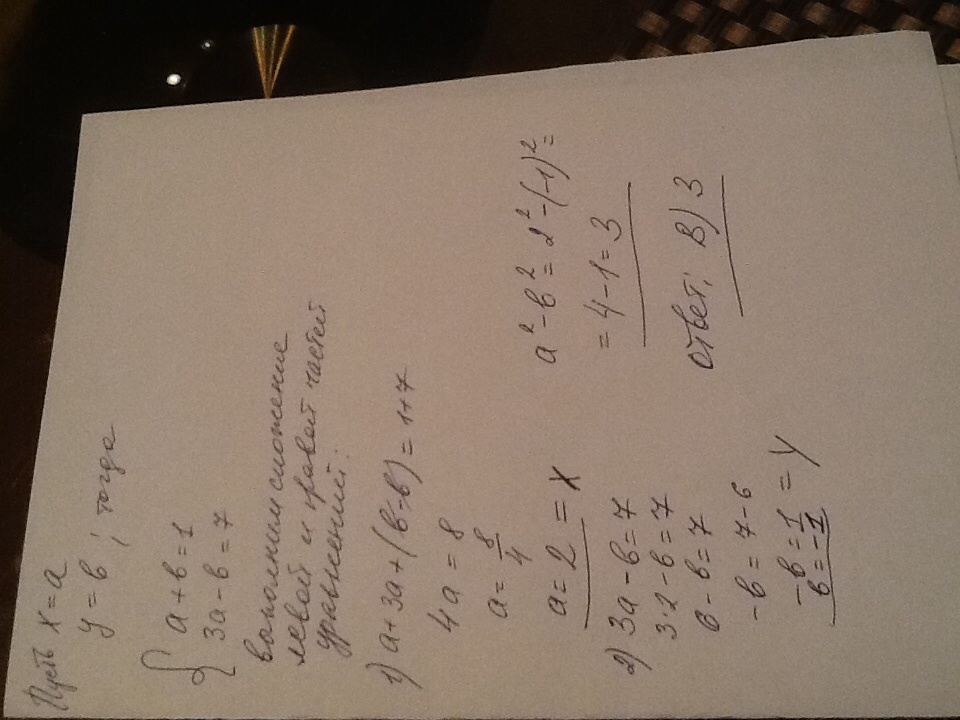 Пусть x = a
y = в ; тогда
{ a + в = 1
3a - в = 7
выполним сложение
левой и правой частей
уравнений:
1) a + 3a + (в - в) = 1 + 7
4a = 8
a = 8/4
a = 2 = x
2) 3a - в = 7
3·2 - в = 7
6 - в = 7
-в = 7 - 6
-в = 1
в = -1 = y
a² - в² = 2² - (-1)² =
= 4 - 1 = 3
Ответ: В) 3